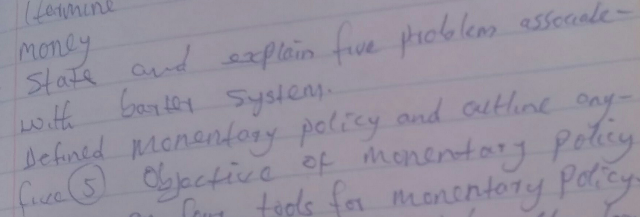 money
State and explain five problem associate-
with barter system.
Defined monentary policy and outline any-
five (5) Objective of monentary policy
tools for monentary policy.